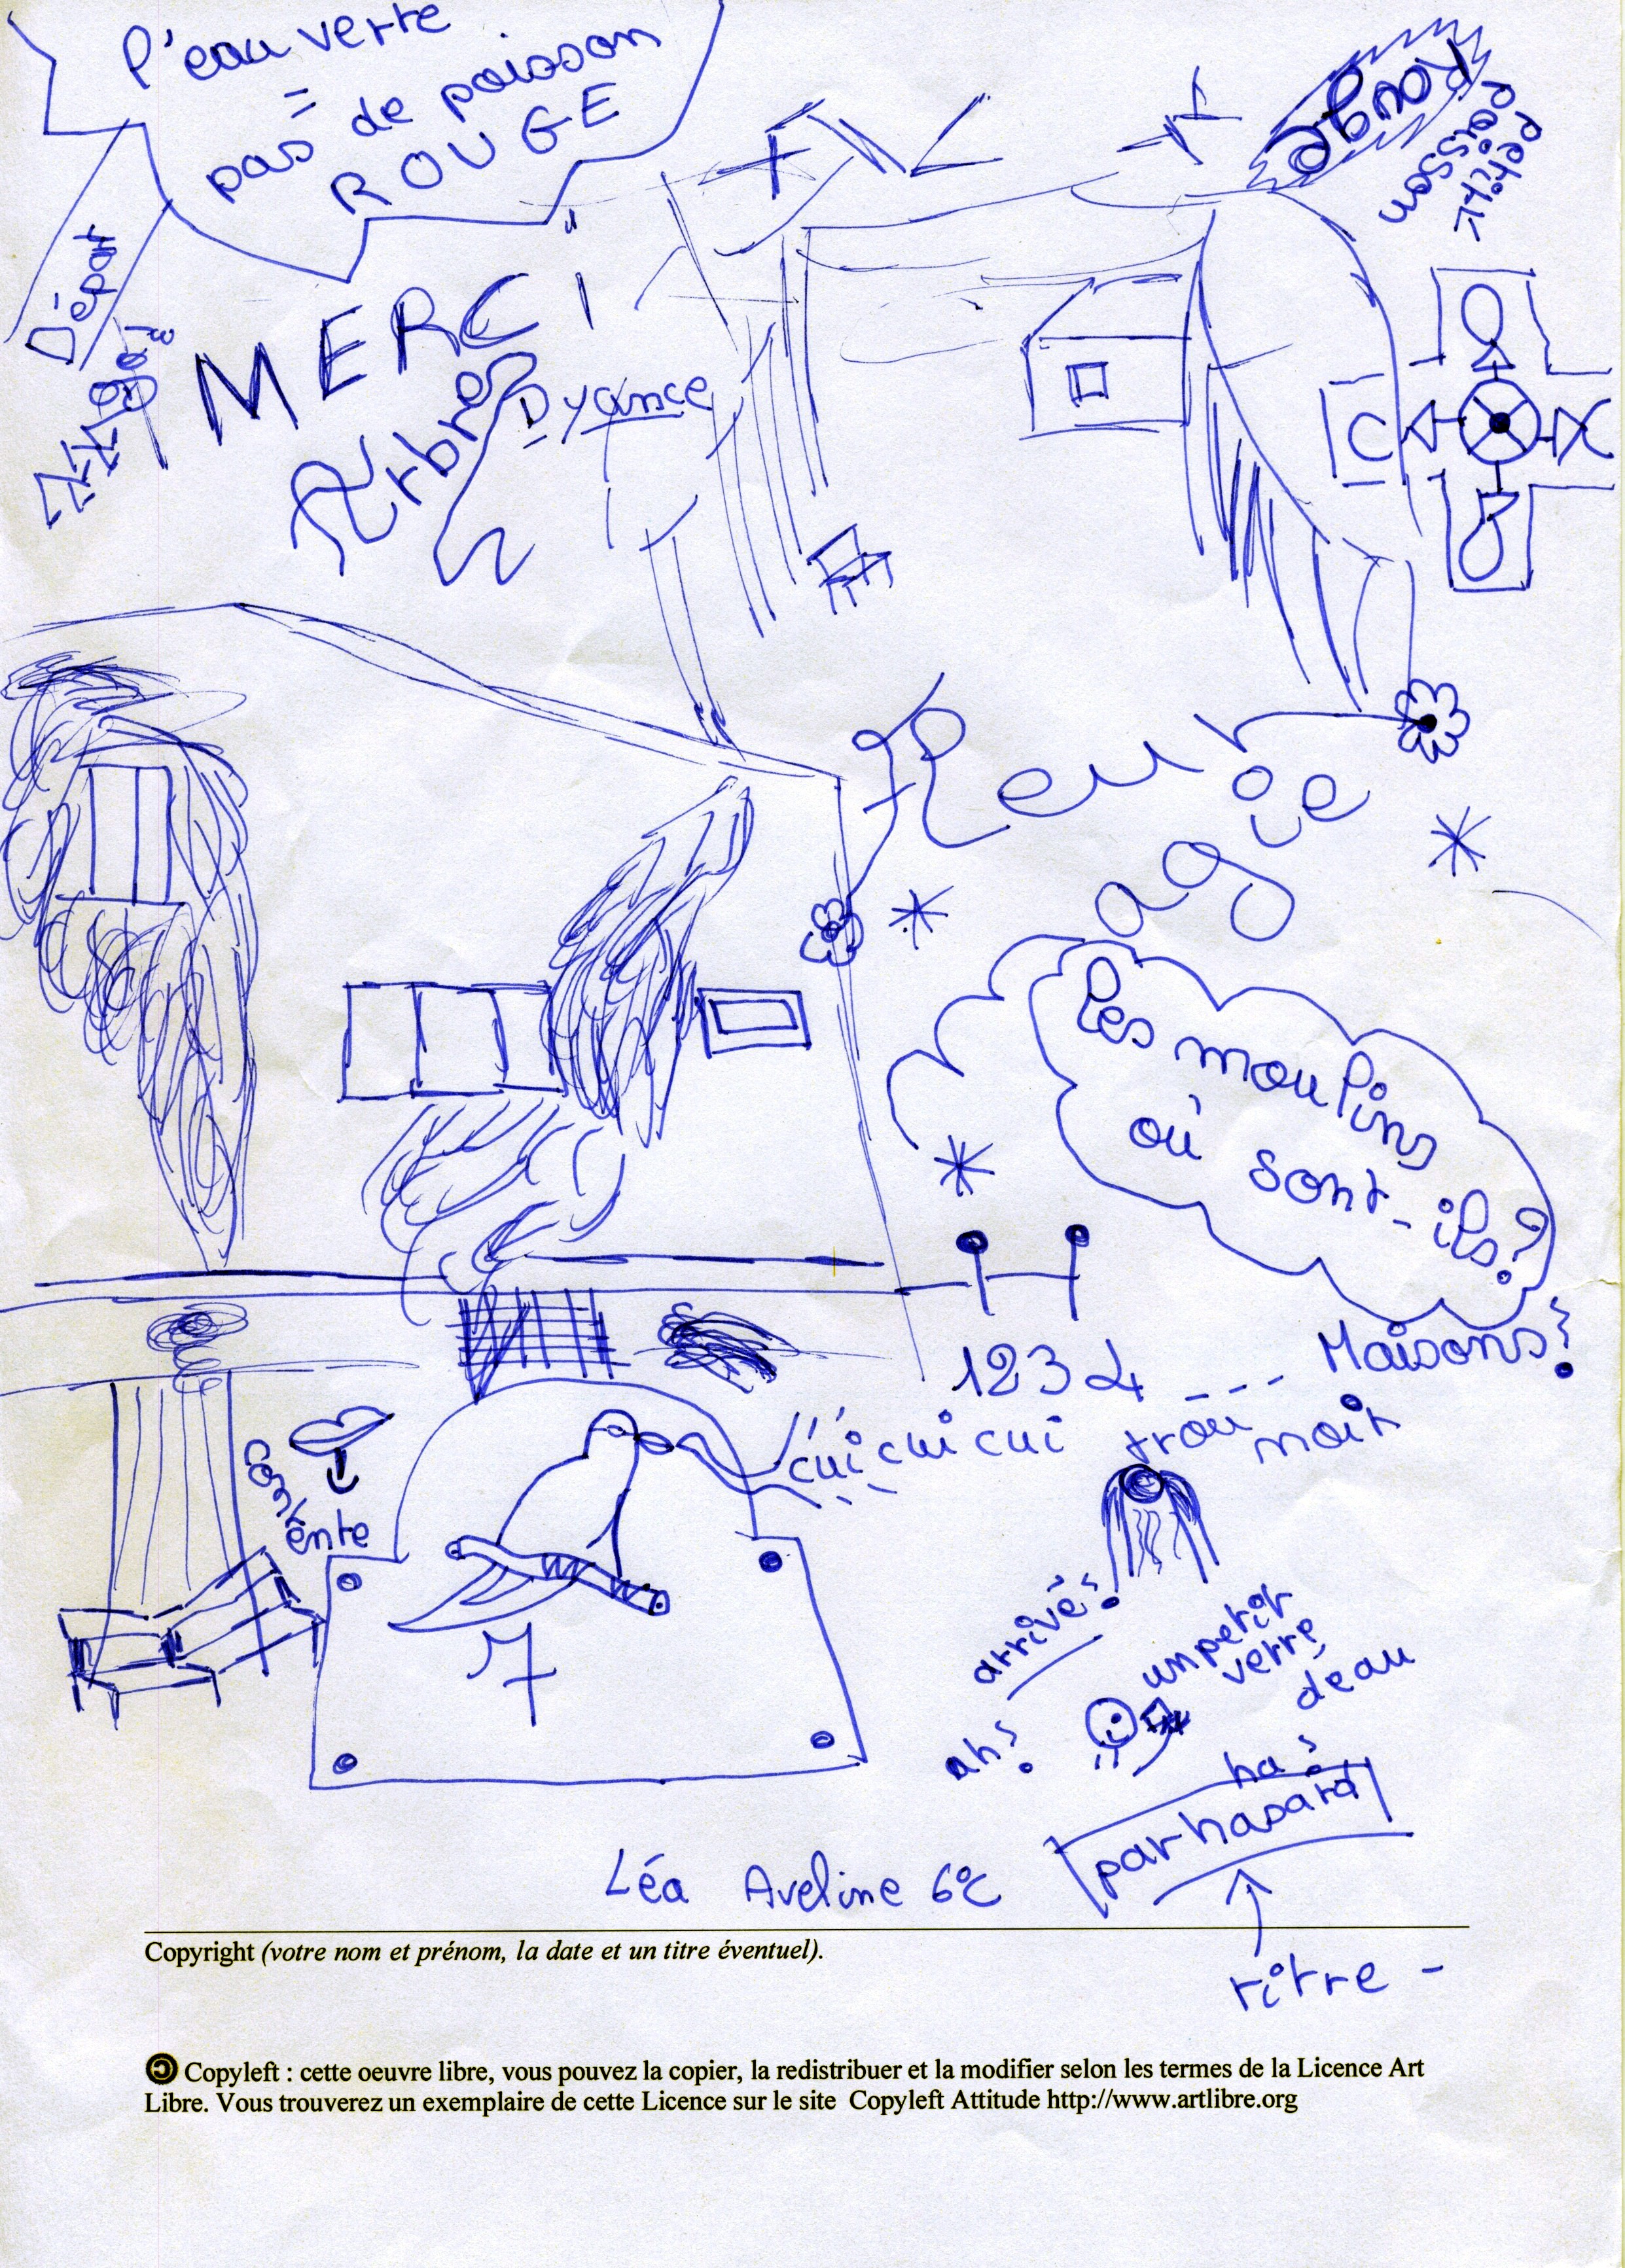 l'eau verte
=
pas de poisson
ROUGE
Rouge
petit
poisson
Départ
MERCI
Arbres
Fleur
age
Les moulins
où sont-ils?
1 2 3 4 --- Maisons?
cui cui cui
trou noir
contente
7
arrivé?
un petit
verre
d'eau
ah?
ha?
par hasard
Léa Aveline 6°C
titre -
Copyright (votre nom et prénom, la date et un titre éventuel).
Copyleft : cette oeuvre libre, vous pouvez la copier, la redistribuer et la modifier selon les termes de la Licence Art
Libre. Vous trouverez un exemplaire de cette Licence sur le site Copyleft Attitude http://www.artlibre.org